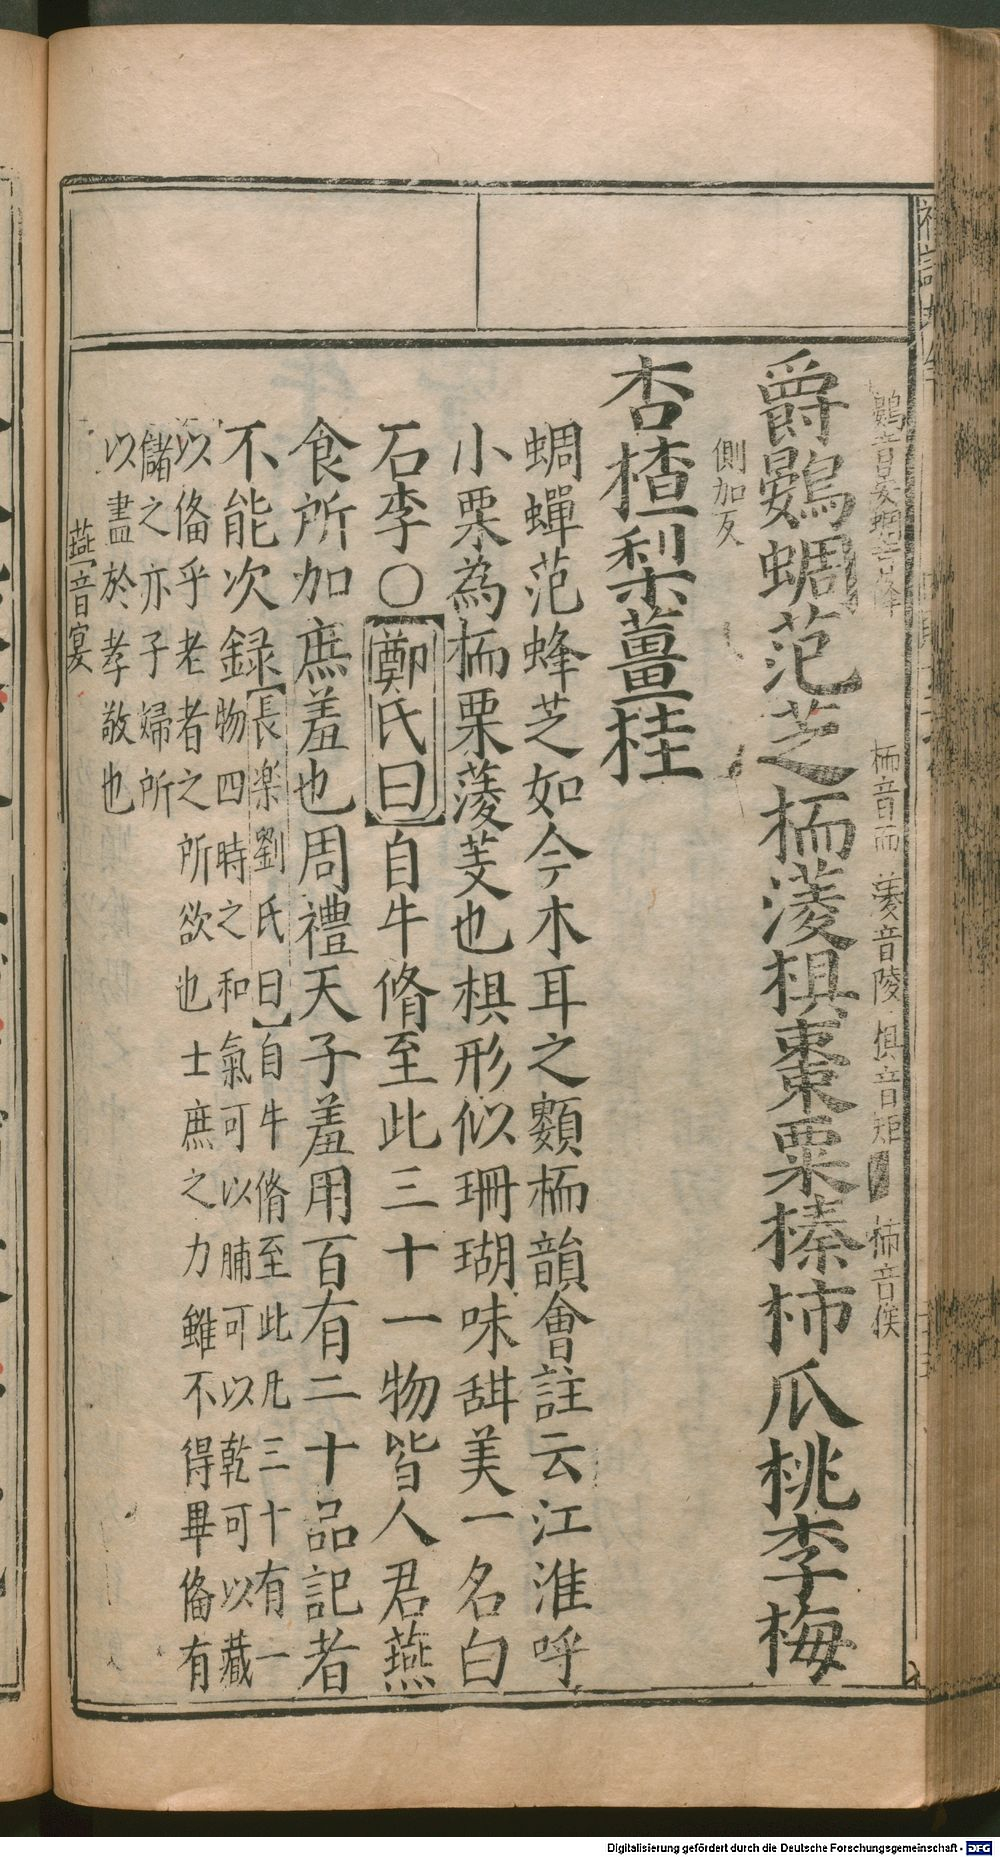 鷃音晏蜩音條 栭音而 蔆音陵 椇音矩 柿音俟
爵鷃蜩范芝栭蔆椇棗栗榛柿瓜桃李梅
側加反
杏楂梨薑桂
蜩蟬范蜂芝如今木耳之類栭韻會註云江淮呼
小栗為栭栗蔆芰也椇形似珊瑚味甜美一名白
石李○鄭氏曰自牛脩至此三十一物皆人君燕
食所加庶羞也周禮天子羞用百有二十品記者
不能次録
長樂劉氏曰自牛脩至此凡三十有一
物四時之和氣可以脯可以乾可以藏
以俻乎老者之所欲也士庶之力雖不得畢俻有
儲之亦子婦所
以盡於孝敬也
燕音宴
Digitalisierung gefördert durch die Deutsche Forschungsgemeinschaft - DFG